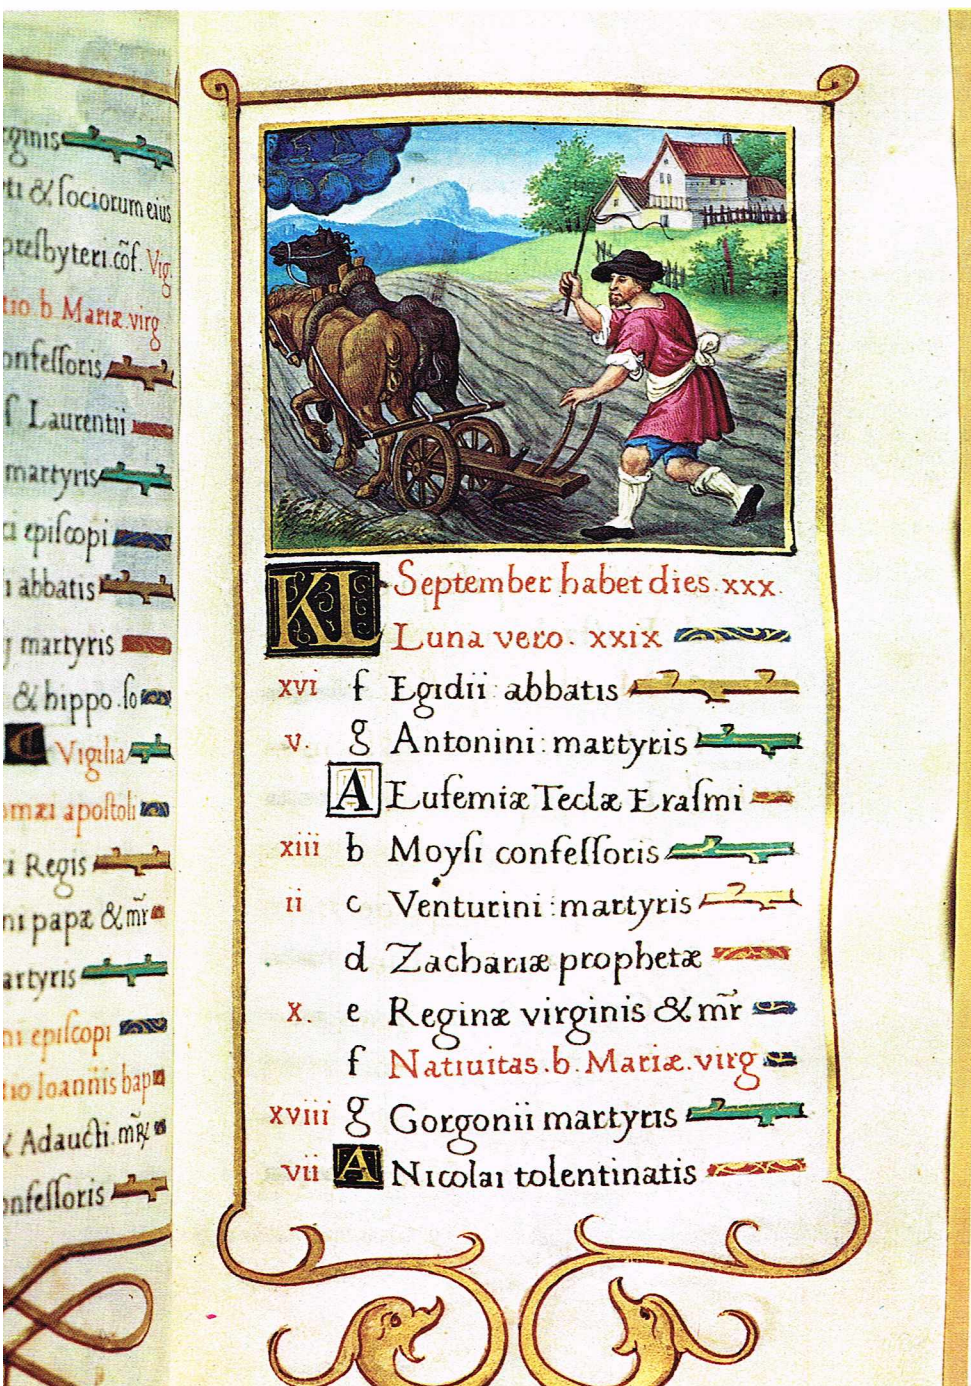 rginis
ti & ſociorum eius
preſbyteri. cõf. Vig.
tio b Mariæ. virg
onfeſſoris
ſ Laurentii
martyris
i epiſcopi
i abbatis
martyris
& hippo. ſo
C Vigilia
omæi apoſtoli
i Regis
ni papæ & mr̃
artyris
ni epiſcopi
tio Ioannis bap
Adaucti. mR̃
onfeſſoris
KL September habet dies. xxx.
Luna vero. xxix
xvi f Egidii abbatis
v. g Antonini: martyris
A Eufemiæ Teclæ Eraſmi
xiii b Moyſi confeſſoris
ii c Venturini: martyris
d Zachariæ prophetæ
x. e Reginæ virginis & mr̃
f Natiuitas. b. Mariæ. virg
xviii g Gorgonii martyris
vii A Nicolai tolentinatis